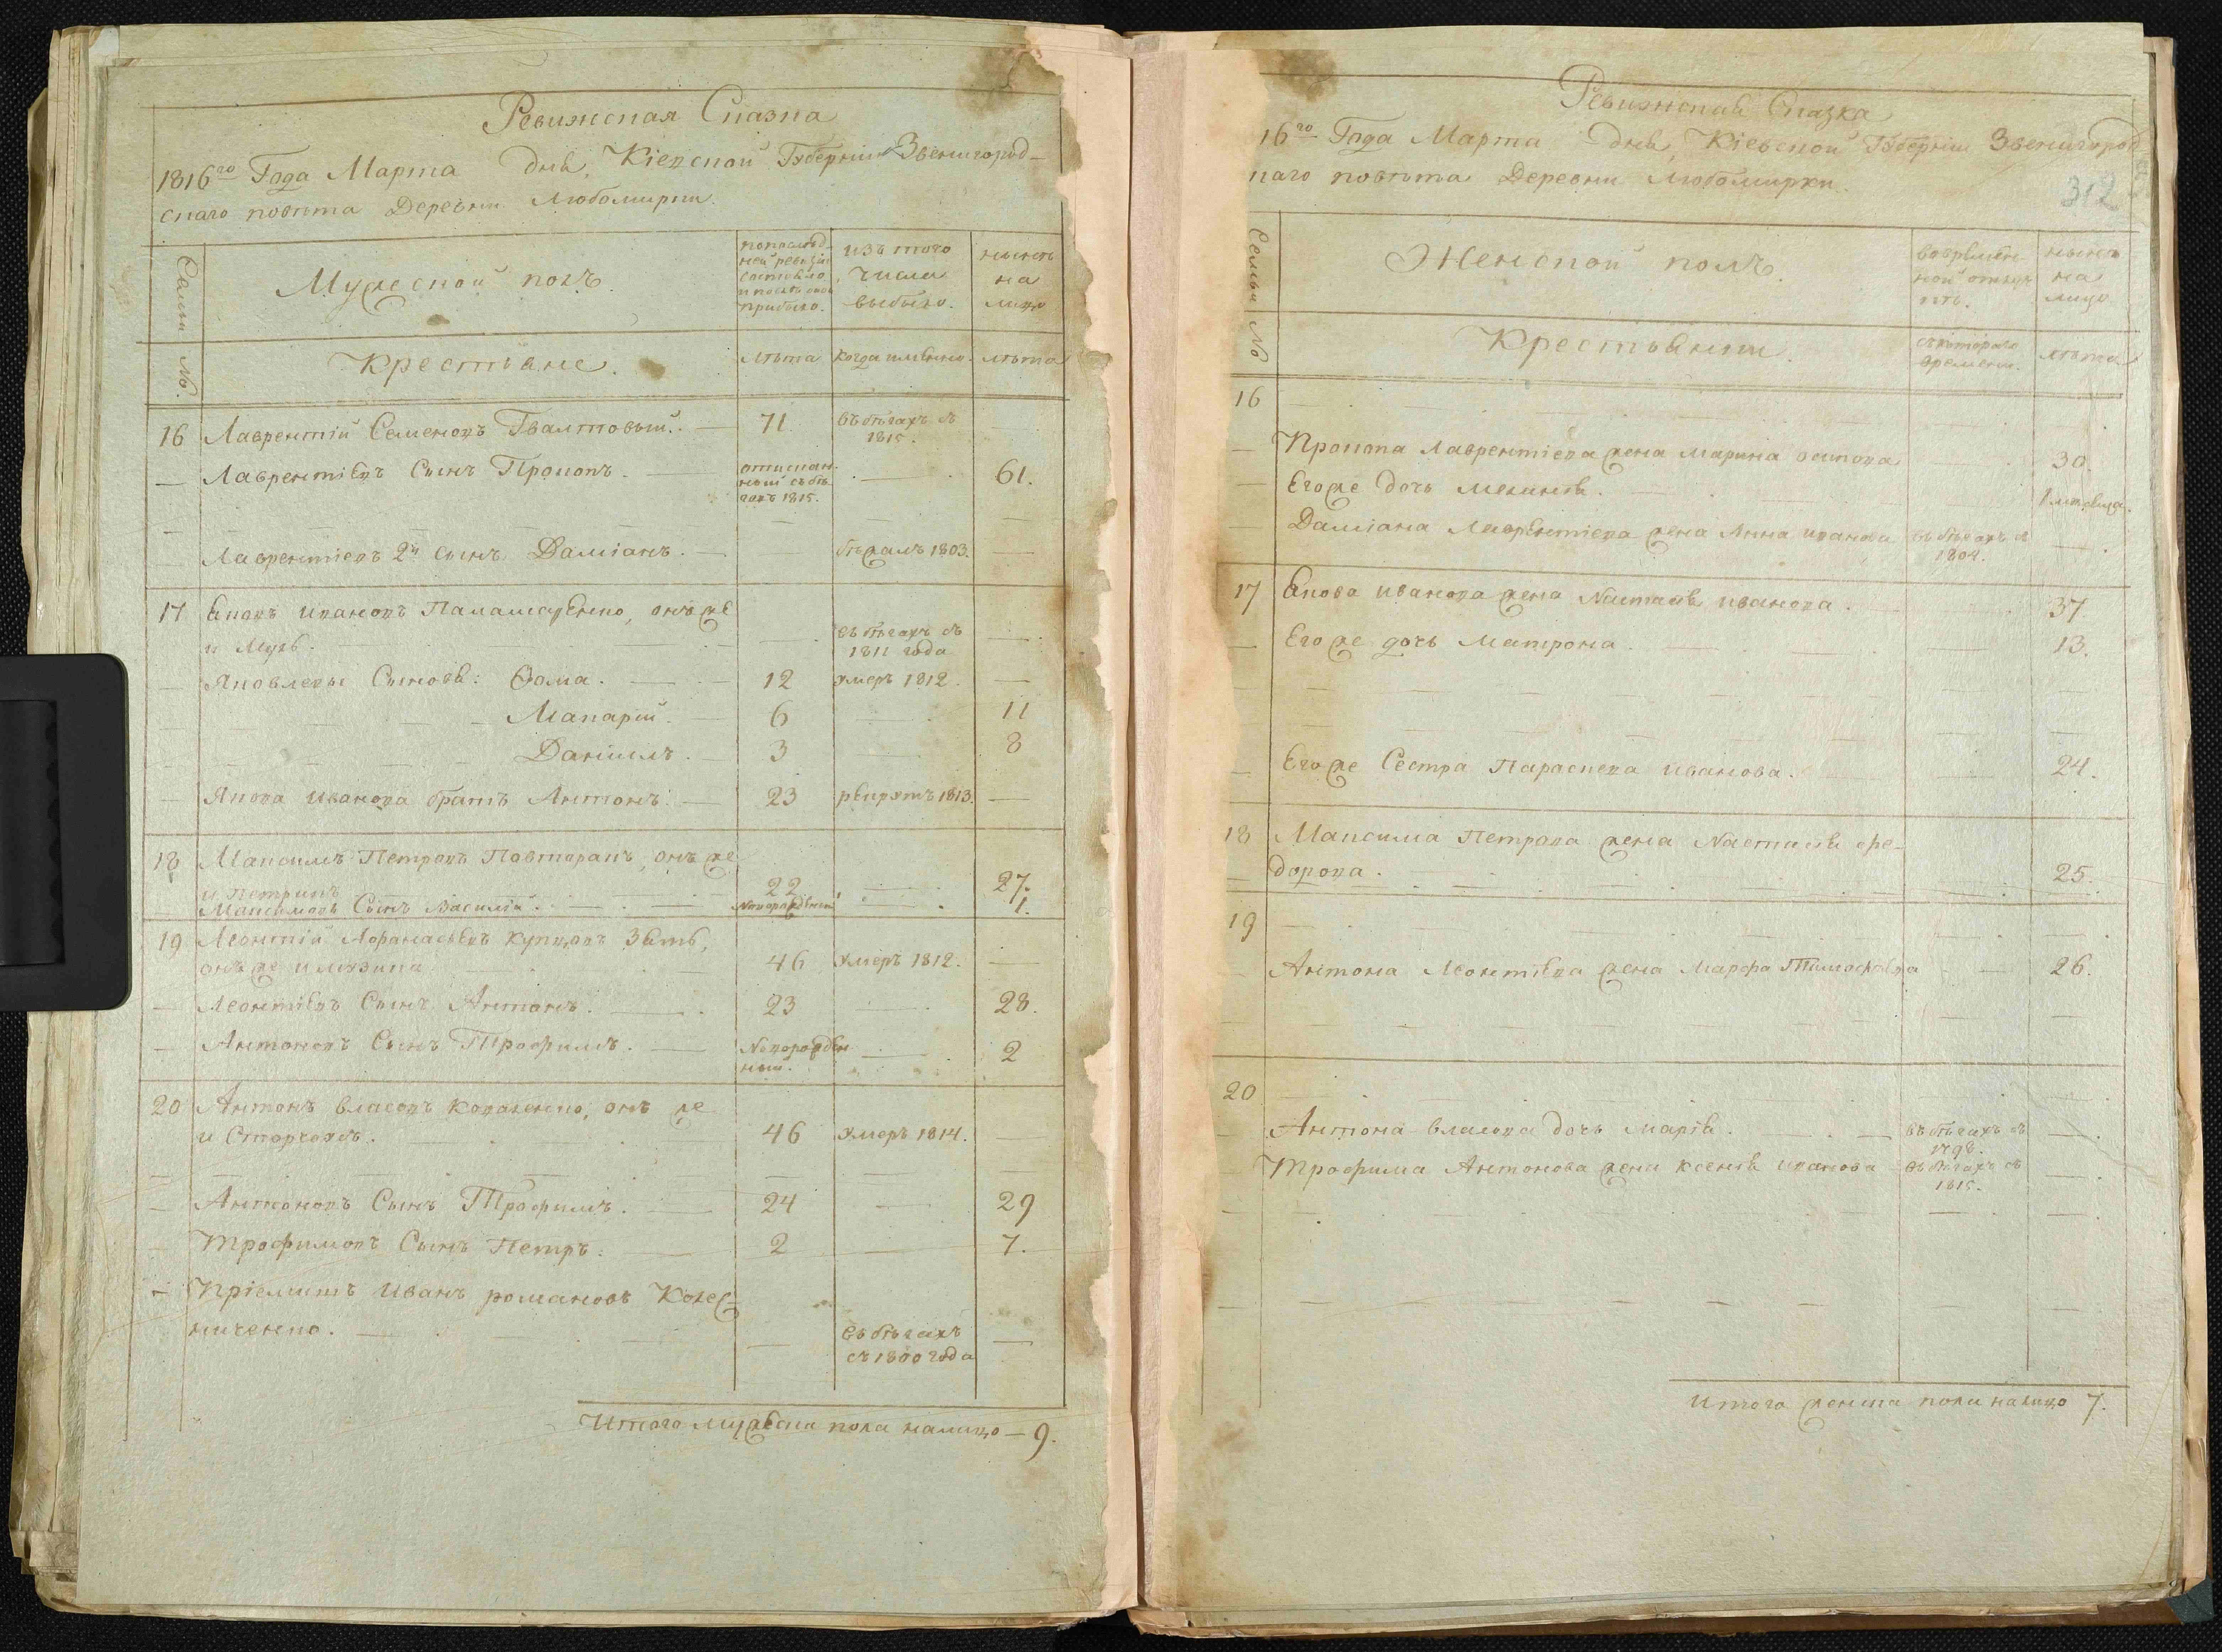 Ревижская Сказка
1816го Года Марта дня, Кіевской Губерніи Звенигород-
скаго повѣта Деревни Любомирки.
Семьи
Мужеской полъ.
по послѣд-
ней ревизіи
состояло
и послѣ оной
прибыло.
изъ того
числа
выбыло.
нынѣ
на
лицо
№
Крестьяне.
лѣта
когда имянно.
лѣта
16 Лаврентій Семеновъ Гвалтовый. — 71. въ бѣгахъ съ —
1815.
— Лаврентіевъ Сынъ Прокопъ. — отискан- — 61.
ный съ бѣ-
говъ 1815.
Лаврентіевъ 2й сынъ Даміанъ. — бѣжалъ 1803. —
17 Яковъ Ивановъ Паламаренко, онъ же
и Мухъ. — въ бѣгахъ съ —
1811 года
— Яковлевы Сыновья: Фома. — 12 умеръ 1812. —
Макарій. — 6 — 11
Даніилъ. — 3 — 8
— Якова Иванова братъ Антонъ. — 23 рекрутъ 1813. —
18 Максимъ Петровъ Повторакъ, онъ же
и Петрикъ — 22 — 27.
Максимовъ Сынъ Василій. — Новорожденный — 1.
19 Леонтій Афанасьевъ Купцовъ Зять,
онъ же и Музыка 46 умеръ 1812. —
— Леонтіевъ Сынъ Антонъ. — 23 — 28.
— Антоновъ Сынъ Трофимъ. — Новорожден — 2
ный.
20 Антонъ Власовъ Коваленко, онъ же
и Сторчакъ. — 46 умеръ 1814. —
— Антоновъ Сынъ Трофимъ. — 24 — 29
— Трофимовъ Сынъ Петръ. — 2 — 7.
— Пріемышъ Иванъ Романовъ Колес-
ниченко. — въ бѣгахъ —
съ 1800 года
Итого мужеска пола налицо — 9.
Ревижская Сказка
16го Года Марта дня, Кіевской Губерніи Звенигород
каго повѣта Деревни Любомирки.
312
Семьи
Женской полъ.
во времен-
ной отлуч-
кѣ.
нынѣ
на
лицо
№
Крестьянки.
съ котораго
времени.
лѣта
16
— Прокопа Лаврентіева жена Марина Остпова — 30.
— Его же дочь Меланія. — 1 мѣсяца.
— Даміана Лаврентіева жена Анна Иванова въ бѣгахъ съ —
1804.
17 Якова Иванова жена Настасія Иванова. — 37
— Его же дочь Матрона. — 13.
— Его же Сестра Параскева Иванова. — 24.
18 Максима Петрова жена Настасія Фе-
дорова. — 25.
19
Антона Леонтіева жена Марфа Тимофѣева — 26.
20
— Антона Власова дочь Марія. — въ бѣгахъ съ —
1798.
Трофима Антонова жена Ксенія Иванова въ бѣгахъ съ —
1815.
Итого женска пола налицо 7.